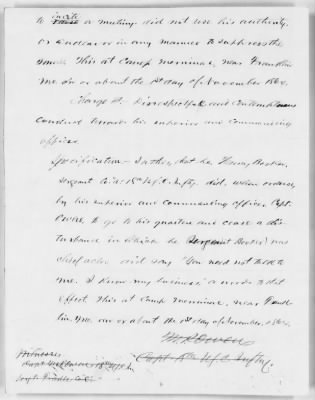 to incite a mutiny did not use his authority
or endeavor in any manner to suppress the
same This at Camp near Franklin
on or about the 1st day of November 1864.
Charge 2. Disrespectful and Contemptuous
Conduct towards his superior and Commanding
officer.
Specification In this, that he Henry Booker,
Sergeant Co. "A" 18th U.S.C. Infty. did, when ordered
by his superior and commanding officer, Capt.
Owen, to go to his quarters and cease a dis-
turbance in which he Sergeant Booker was
chief actor and say "You need not talk to
me. I know my business" or words to that
effect This at Camp, near Frank-
lin on or about the 1st day of November, 1864.
M. S. Owen
Capt. U.S.C. Infty.
Witnesses